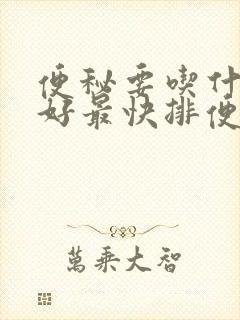 便秘要喫什
好最快排便
萬乘大智